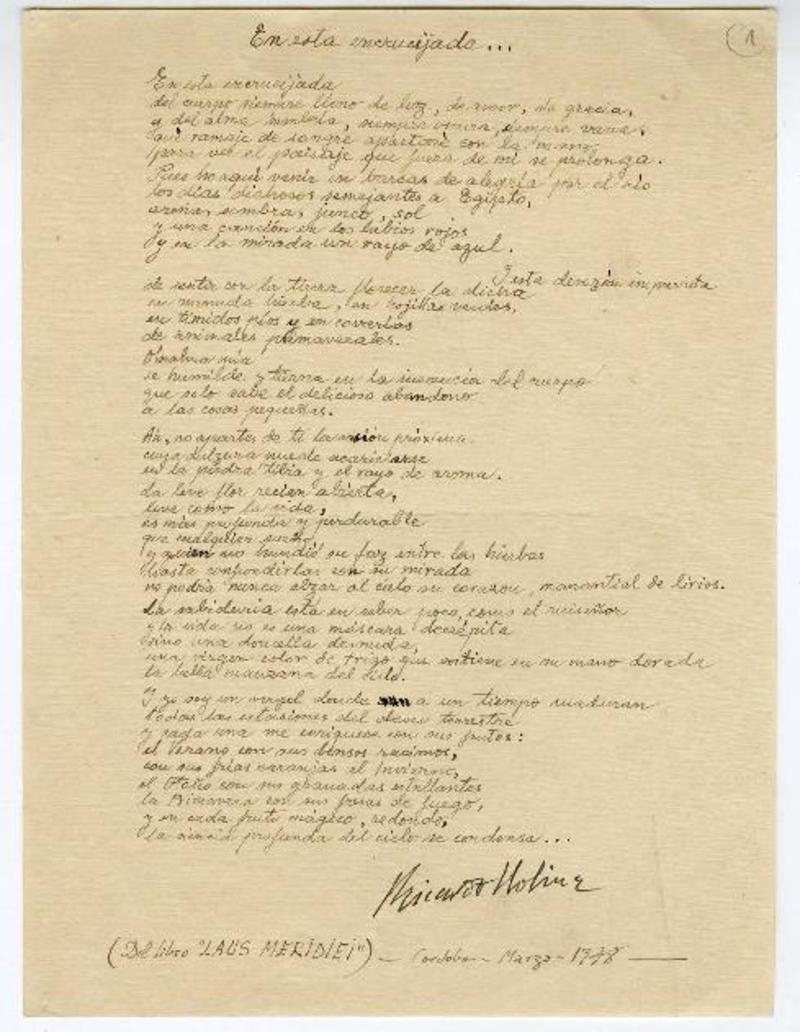 En esta encrucijada...
1
En esta encrucijada
del cuerpo siempre lleno de luz, de amor, de gracia,
y del alma sombría, siempre siempre vana,
qué ramaje de sangre apartaré con la mano
para ver el paisaje que fuera de mí se prolonga.
Pues he aquí venir en barcas de alegría por el río
los días dichosos semejantes a Egipto,
arena, sombra, junco, sol
y una canción en los labios rojos
y en la mirada un rayo de azul.
Y esta desazón imprevista
de sentir con la tierra florecer la dicha
en menuda hierba, en hojillas verdes,
en tímidos píos y en carreras
de animales primaverales.
Oh alma mía
sé humilde y tierna en la inocencia del cuerpo
que solo sabe el delicioso abandono
a las cosas pequeñas.
Ah, no apartes de ti la visión próxima
cuya dulzura puede acariciarse
en la piedra tibia y el rayo de aroma.
La leve flor recién abierta,
leve como la vida,
es más profunda y perdurable
que cualquier sueño
y quien no hundió su faz entre las hierbas
hasta confundirlas con su mirada
no podrá nunca alzar al cielo su corazón, manantial de lirios.
La sabiduría está en saber poco, como el ruiseñor
y la vida no es una máscara decrépita
sino una doncella desnuda,
una virgen color de trigo que sostiene en su mano dorada
la bella manzana del
Y yo soy un vergel donde a un tiempo maduran
todas las estaciones del terrestre
y cada una me enriquece con sus frutos:
el Verano con sus densos racimos,
con sus frías naranjas el Invierno,
el Otoño con sus granadas estallantes
la Primavera con sus fresas de fuego,
y en cada fruto mágico, redondo,
la ciencia profunda del cielo se condensa...
Ricardo Molina
(Del libro "LAUS MERIDIEI") — Cordoba - Marzo - 1948 —